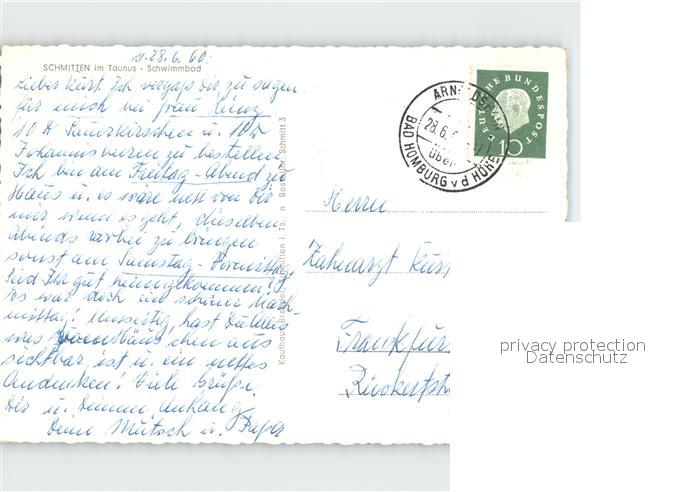 d. 28.6.60.
SCHMITTEN im Taunus - Schwimmbad
Lieber Kurt. Ich vergaß Dir zu sagen
für mich bei Frau
10 ℔ Sauerkirschen u. 10 ℔
Johannisbeeren zu bestellen
Ich bin am Freitag-Abend zu
Haus u. es wäre nett von Dir
mir wenn es geht, dieselben
abends vorbei zu bringen
sonst am Samstag-Vormittag.
Seid Ihr gut heimgekommen?
Es war doch ein schöner Nach-
mittag! Umseitig, hast Du
was Häuschen
sichtbar ist u. ein nettes
Andenken! Viele Grüße
Dir u. Anhang
Deine u.
Kaufhaus Schmitten i. Ts. Best. Nr. Schmitt 3
ARN
28.6.
über
BAD HOMBURG v d HÖHE
DEUTSCHE BUNDESPOST
10
Herrn
Zahnarzt Kurt
Frankfur
Rückertstr
privacy protection
Datenschutz